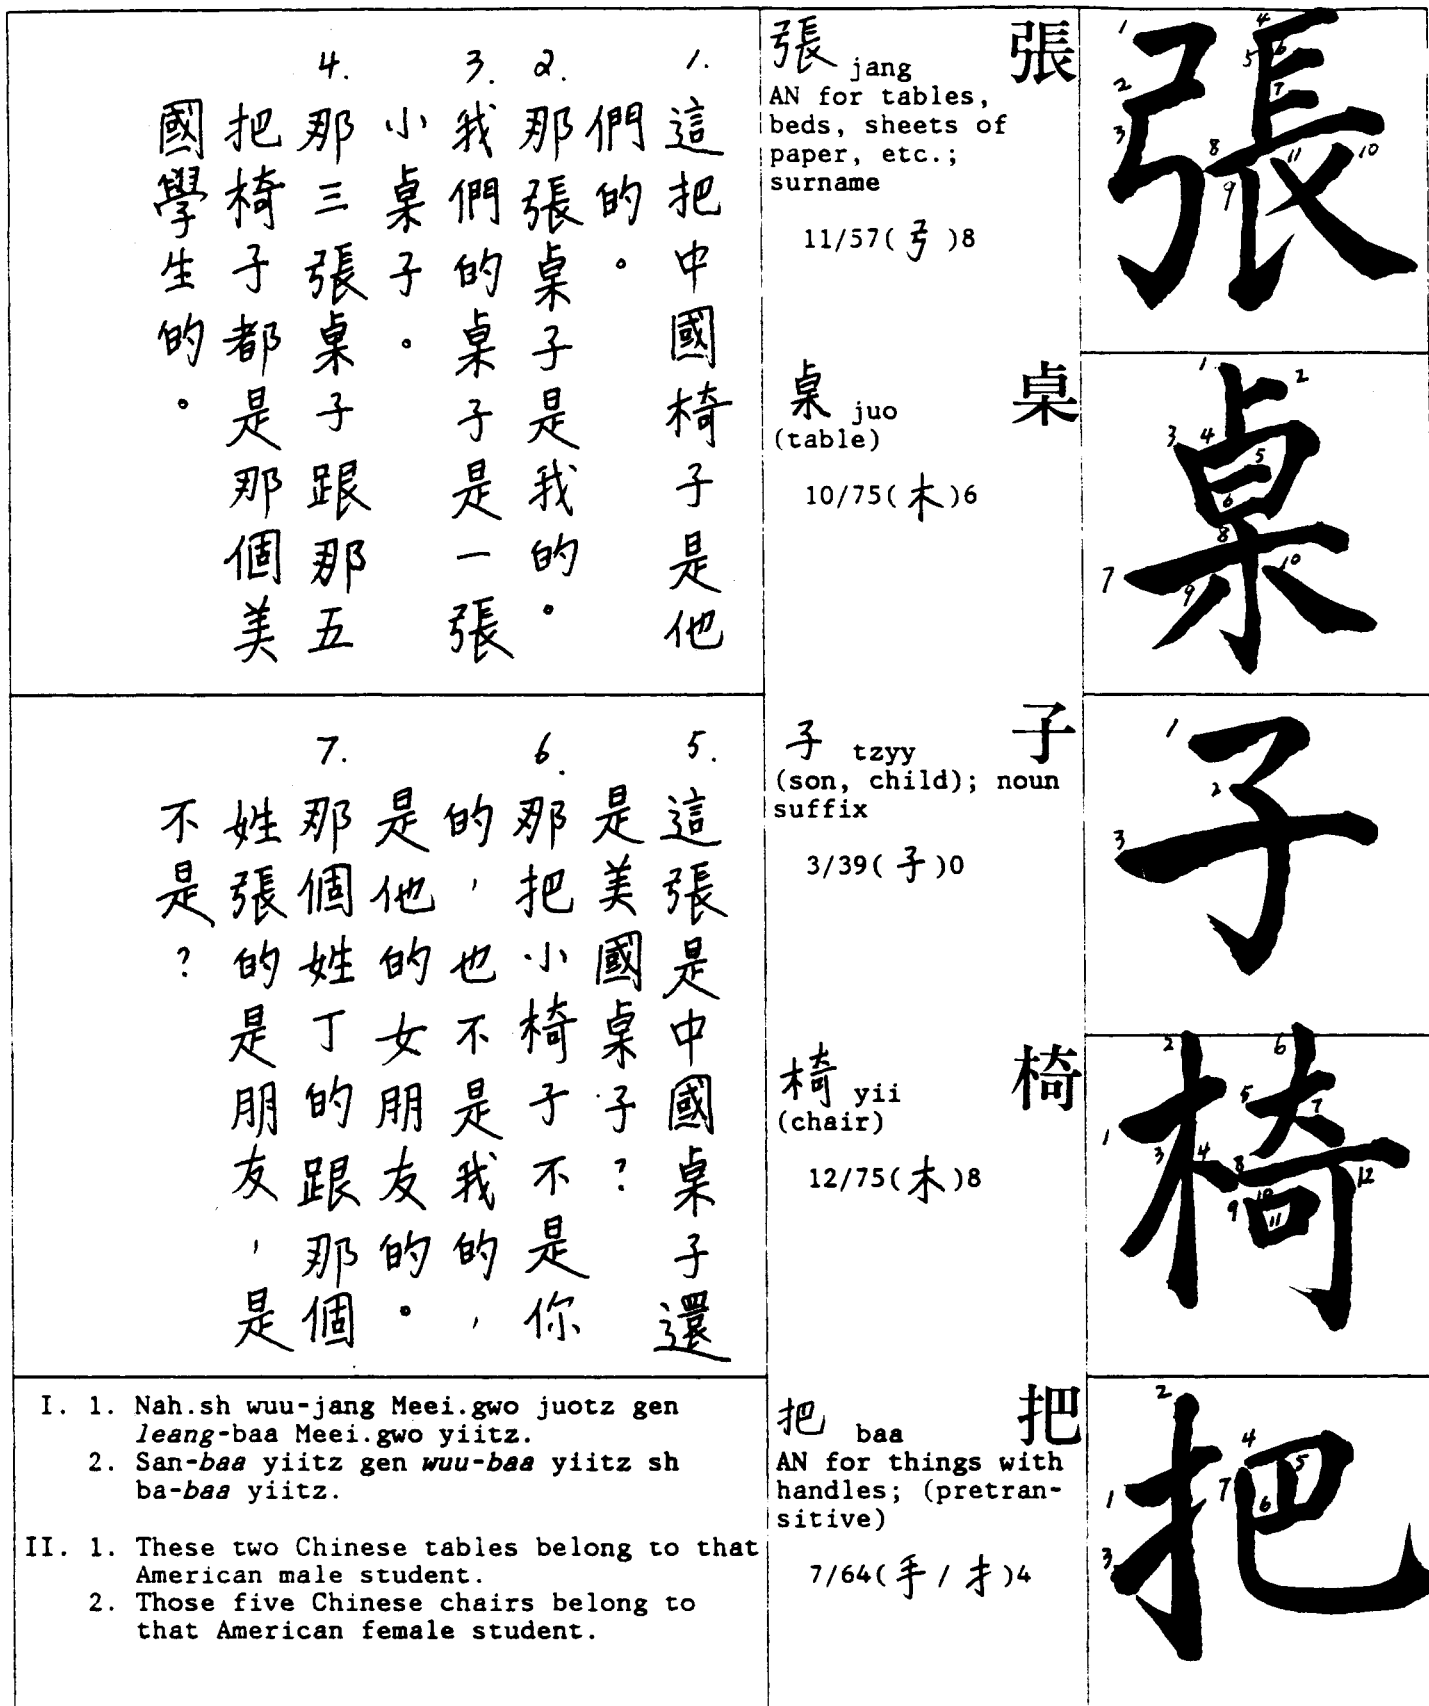 1.
這把中國椅子是他
們的。
2.
那張桌子是我的。
3.
我們的桌子是一張
小桌子。
4.
那三張桌子跟那五
把椅子都是那個美
國學生的。
5.
這張是中國桌子還
是美國桌子?
6.
那把小椅子不是你
的,也不是我的,
是他的女朋友的。
7.
那個姓丁的跟那個
姓張的是朋友,是
不是?
I. 1. Nah.sh wuu-jang Meei.gwo juotz gen
leang-baa Meei.gwo yiitz.
2. San-baa yiitz gen wuu-baa yiitz sh
ba-baa yiitz.
II. 1. These two Chinese tables belong to that
American male student.
2. Those five Chinese chairs belong to
that American female student.
張 jang 張
AN for tables,
beds, sheets of
paper, etc.;
surname
11/57(弓)8
桌 juo 桌
(table)
10/75(木)6
子 tzyy 子
(son, child); noun
suffix
3/39(子)0
椅 yii 椅
(chair)
12/75(木)8
把 baa 把
AN for things with
handles; (pretran-
sitive)
7/64(手/扌)4
張
1 2 3 4 5 6 7 8 9 10 11
桌
1 2 3 4 5 6 7 8 9 10
子
1 2 3
椅
1 2 3 4 5 6 7 8 9 10 11 12
把
1 2 3 4 5 6 7